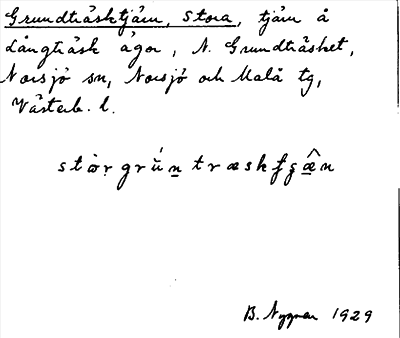 Grundträsktjärn, Stora, tjärn å
Långträsk ägor, N. Grundträsket,
Norsjö sn, Norsjö och Malå tg,
Västerb. l.
B. Nygren 1929